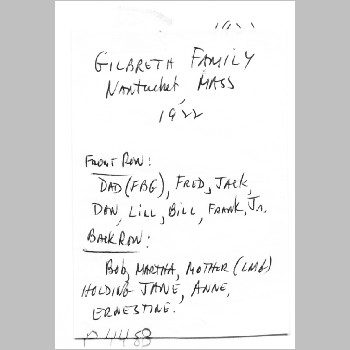 GILBRETH FAMILY
NANTUCKET MASS
1922
FRONT ROW:
DAD (FBG), FRED, JACK,
DAN, LILL, BILL, FRANK, Jr.
BACK ROW:
BOB, MARTHA, MOTHER (LMG)
HOLDING JANE, ANNE,
ERNESTINE.
P 4488